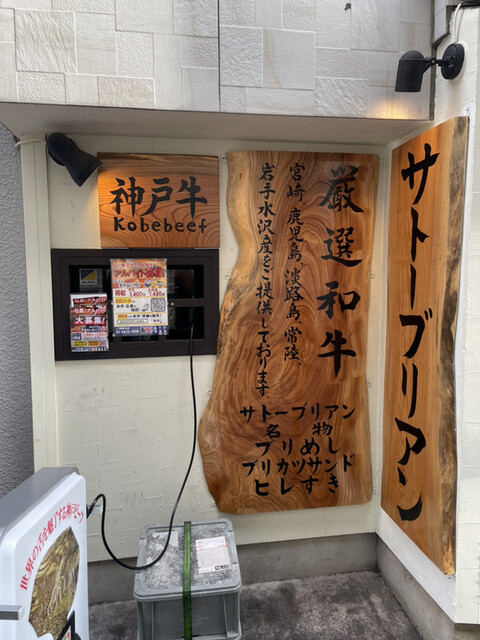 神戸牛
Kobebeef
厳選和牛
宮崎 鹿児島 淡路島 常陸、
岩手水沢産をご提供しております。
サトーブリアン
名物
ブリめし
ブリカツサンド
ヒレすき
サトーブリアン
アルバイト
時給
1,400円
大募集!
世界の舌を魅了する神戸ビーフ